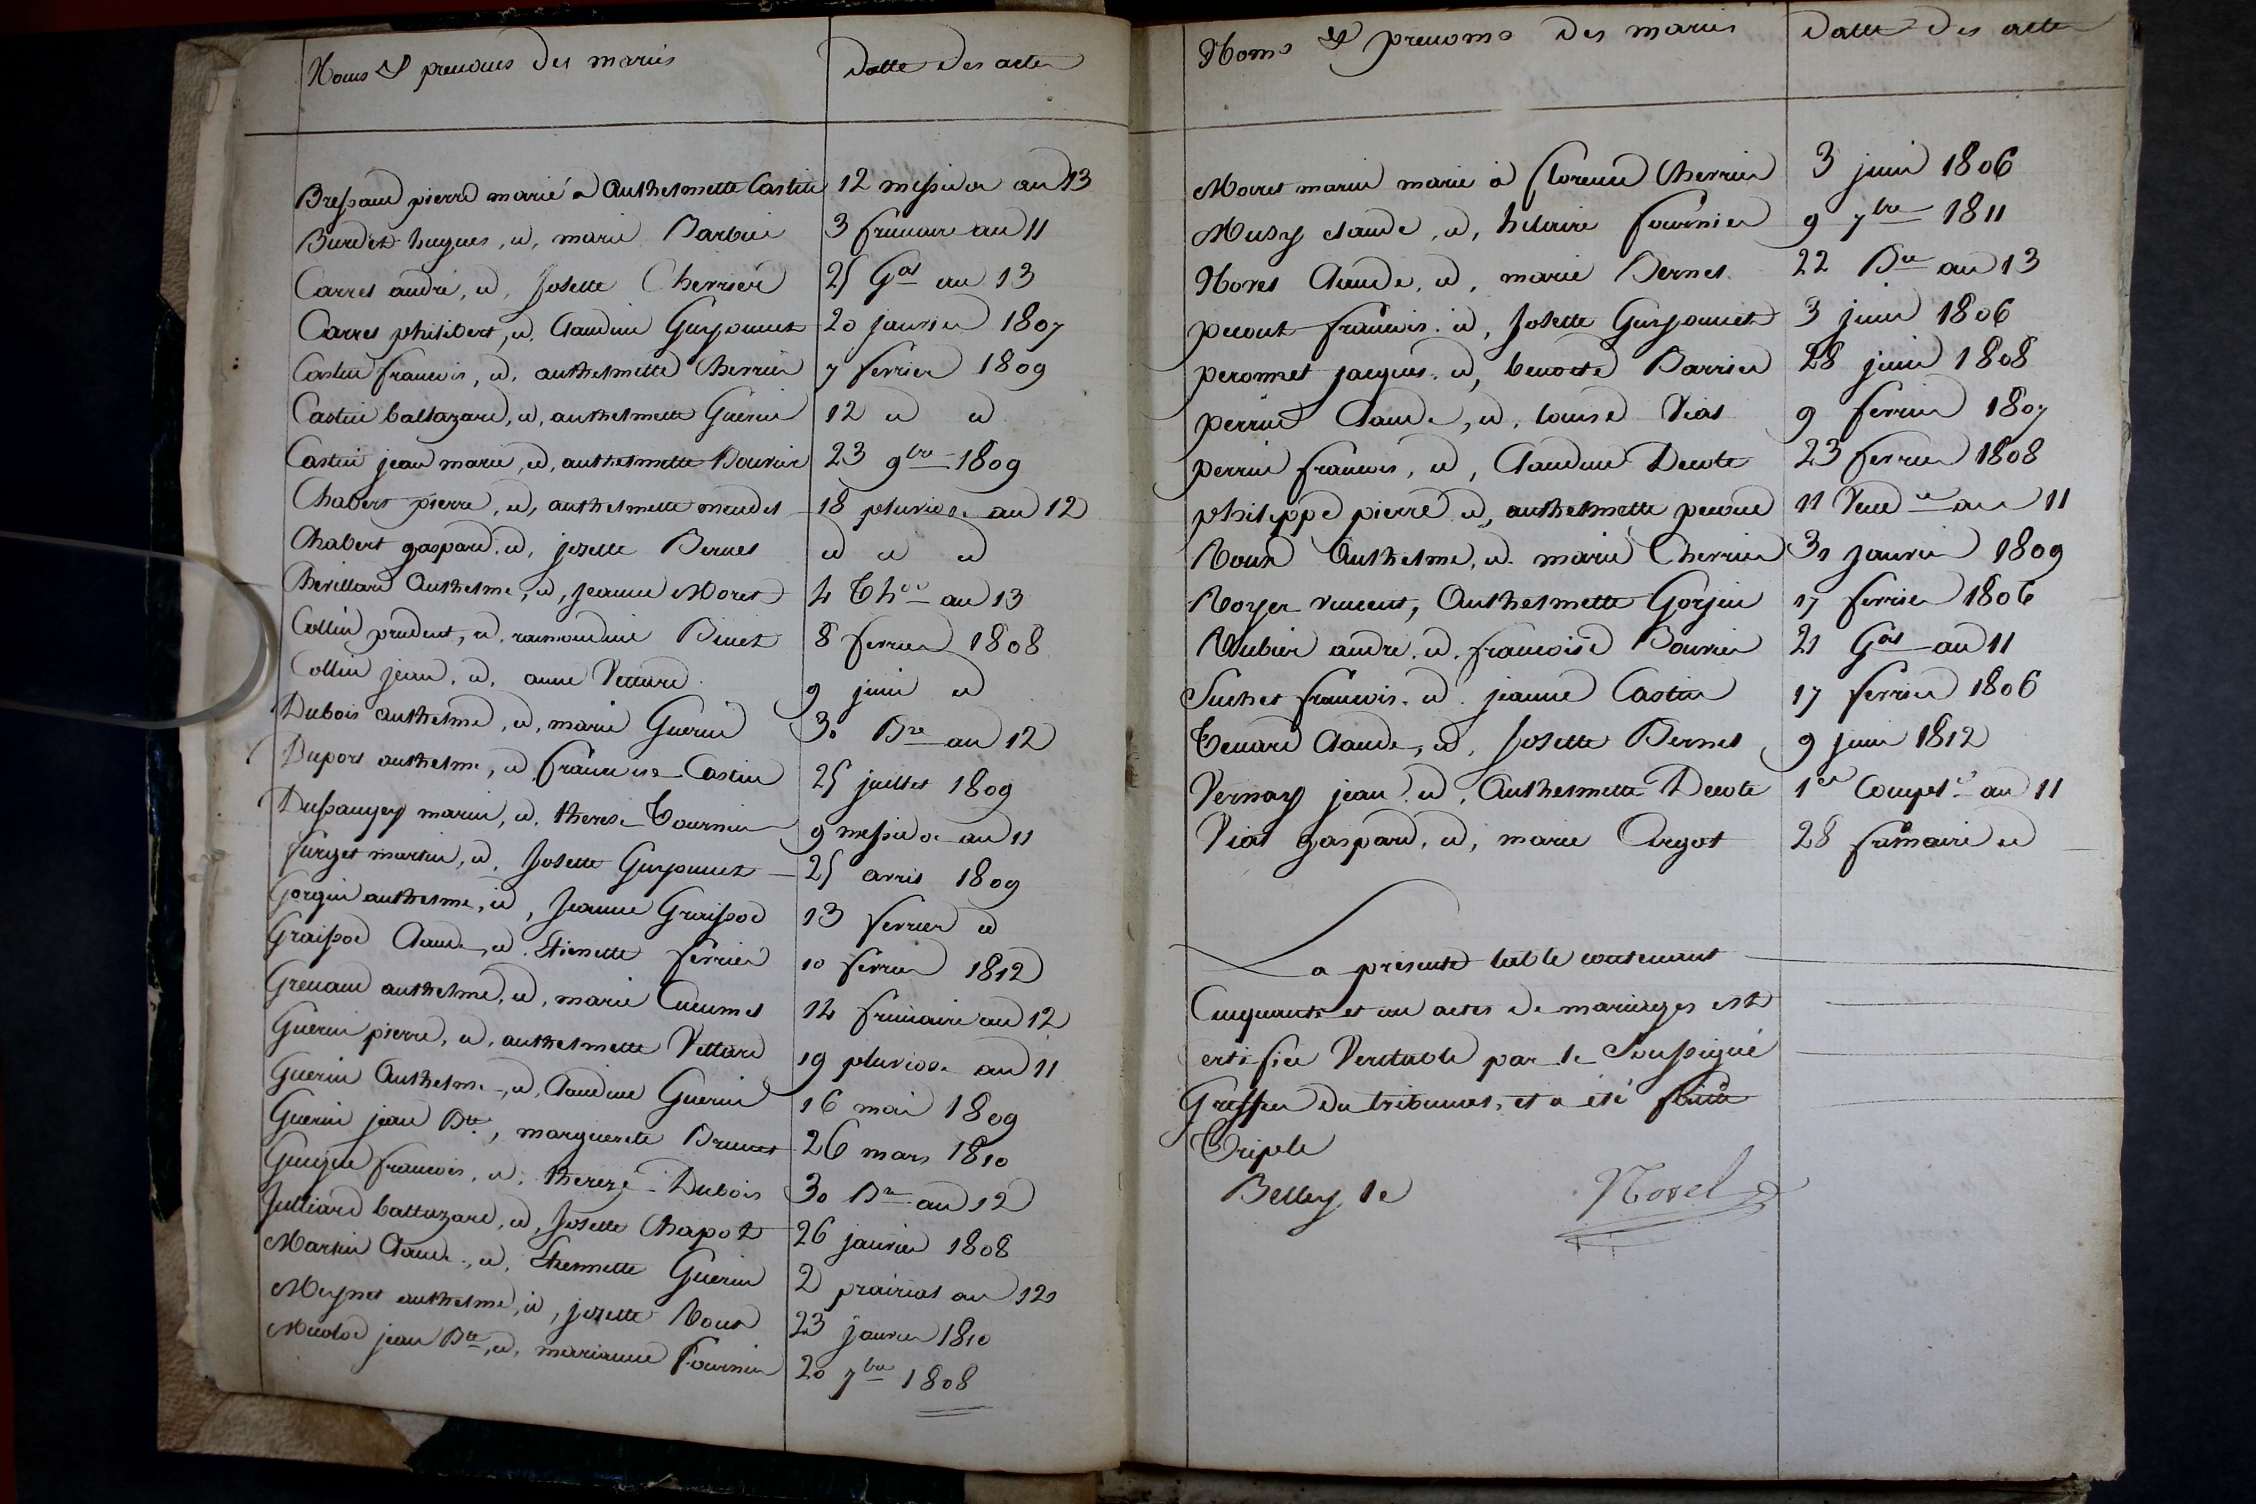 Noms & prenoms des mariés Datte des actes
Bressaud pierre marié a Authelmette Castin 12 messidor an 13
Burdet hugues, id, marie Barbier 3 frimaire an 11
Carrel andré, id, Josette Cherrier 25 Gal an 13
Carrel philibert, id, Claudine Guyonnet 20 janvier 1807
Castin francois, id, authelmette Cherrier 7 fevrier 1809
Castin baltazard, id, authelmette Guerin 12 id id
Castin jean marie, id, authelmette Bouvier 23 9bre 1809
Chabert pierre, id, authelmette 18 pluviose an 12
Chabert gaspard, id, josette Bernel id id id
Authelme, id, jeanne Moret 4 Thor an 13
Collin prudent, id, raimondine Binet 8 fevrier 1808
Collin jean, id, anne Vettard 9 juin id
Dubois authelme, id, marie Guerin 30 Bre an 12
Duport authelme, id, francoise Castin 25 juillet 1809
Dussaugey marin, id, therese Tournier 9 messidor an 11
Furget martin, id, Josette Guyonnet 25 avril 1809
Gorgin authelme, id, Jeanne Graissod 13 fevrier id
Graissod Claude, id, Etiennette ferrier 10 fevrier 1812
Grenaud authelme, id, marie 14 frimaire an 12
Guerin pierre, id, authelmette Vettard 19 pluviose an 11
Guerin Authelme, id, Claudine Guerin 16 mai 1809
Guerin jean Bte, marguerite Brunet 26 mars 1810
Guigue francois, id, thereze Dubois 30 Bre an 12
Julliard baltazard, id, Josette Chapot 26 janvier 1808
Martin Claude, id, Etiennette Guerin 2 prairial an 12
Meynet authelme, id, josette Roux 23 janvier 1810
Micolod jean Bte, id, marianne Fournier 20 7bre 1808
Noms & prenoms des mariés Datte des actes
Moret marin marié à florence Cherrier 3 juin 1806
Musy claude, id, hilaire fournier 9 7bre 1811
Novel Claude, id, marie Bernel 22 Bre an 13
pecout francois, id, Josette Guyonnet 3 juin 1806
peronnet jacques, id, benoite Barrier 28 juin 1808
perrin Claude, id, louise Vial 9 fevrier 1807
perrin francois, id, Claudine Decote 23 fevrier 1808
philippe pierre, id, authelmette 11 Vendre an 11
Roux Authelme, id, marie Cherrier 31 janvier 1809
Royer vincent, Authelmette Gorjin 17 fevrier 1806
Rubier andré, id, francoise Bouvier 21 Gal an 11
Suchet francois, id, jeanne Castin 17 fevrier 1806
Tenard Claude, id, Josette Bernel 9 juin 1812
Vernay jean, id, Authelmette Decote 1er Complre an 11
Vial gaspard, id, marie Argot 28 frimaire id
La présente table contenant
Cinquante et un actes de mariages est
certifiée Veritable par le Soussigné
Greffier du tribunal, et a été faite
Triple
Belley le Novel